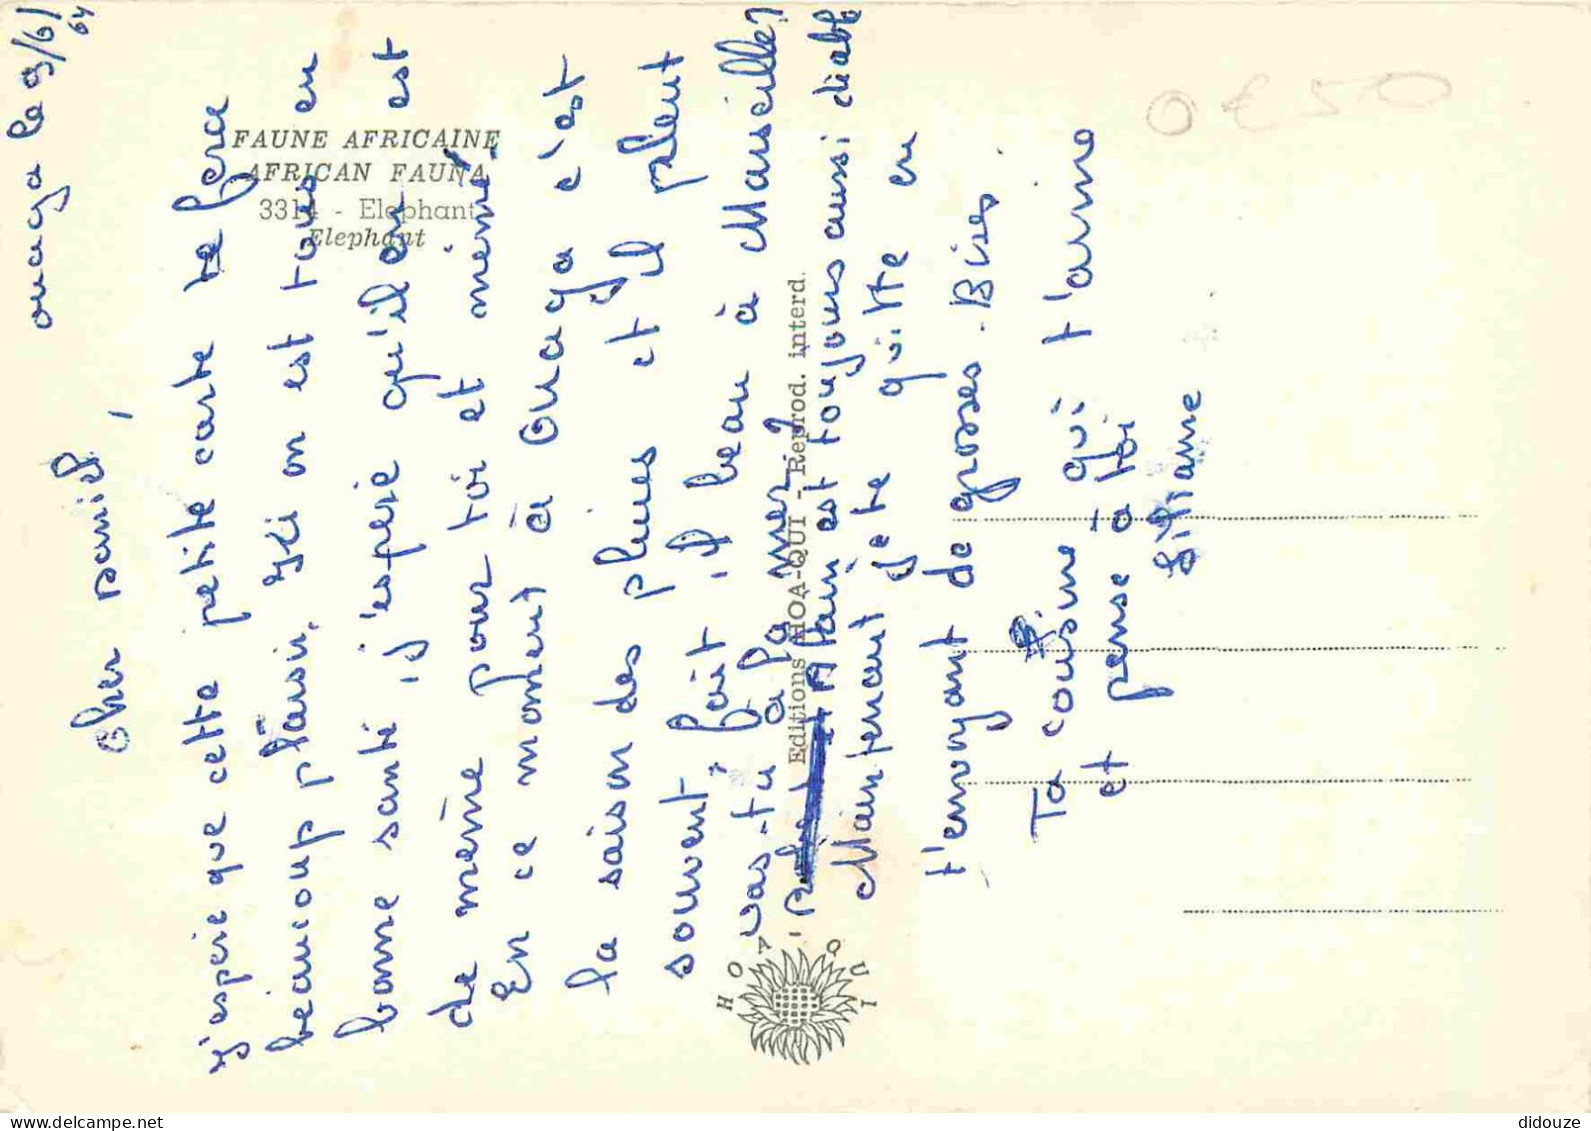 ouaga le 9/6/
64
cher Daniel,
j'espère que cette petite carte te fera
beaucoup plaisir. Ici on est tous en
bonne santé, j'espère qu'il en est
de même pour toi et mémé.
En ce moment à Ouaga c'est
la saison des pluies et il pleut
souvent, fait il beau à Marseille?
vas-tu à la mer?
et Alain est toujours aussi diable
Maintenant je te quitte en
t'envoyant de grosses Bises
Ta cousine qui t'aime
et pense à toi
Liliane
FAUNE AFRICAINE
AFRICAN FAUNA
3314 - Elephant
Elephant
Editions HOA-QUI - Reprod. interd.
HOA QUI
0€50
didouze